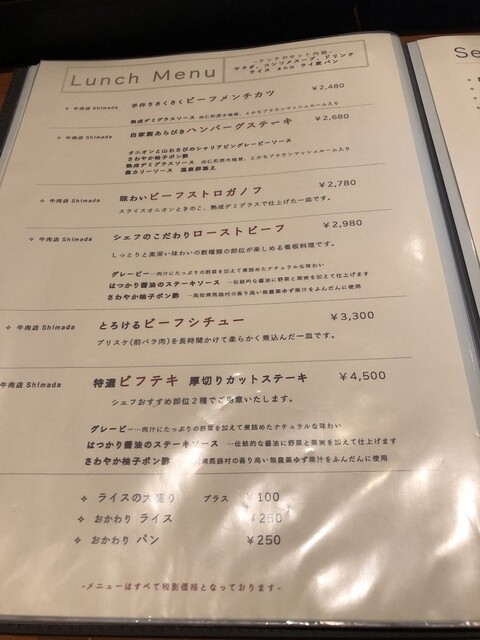 Lunch Menu
-ランチのセット内容-
サラダ、コンソメスープ、ドリンク
ライス または ライ麦パン
Se
✧ 牛肉店 Shimada 手作りさくさくビーフメンチカツ ¥2,480
熟成デミグラスソース 由仁町原木椎茸、とかちブラウンマッシュルーム入り
✧ 牛肉店 Shimada 自家製あらびきハンバーグステーキ ¥2,680
オニオンと山わさびのシャリアピングレービーソース
さわやか柚子ポン酢
熟成デミグラスソース 由仁町原木椎茸、とかちブラウンマッシュルーム入り
農カリーソース 温泉卵添え
✧ 牛肉店 Shimada 味わいビーフストロガノフ ¥2,780
スライスオニオンときのこ、熟成デミグラスで仕上げた一皿です。
✧ 牛肉店 Shimada シェフのこだわりローストビーフ ¥2,980
しっとりと奥深い味わいの数種類の部位が楽しめる看板料理です。
グレービー…肉汁にたっぷりの野菜を加えて煮詰めたナチュラルな味わい
はつかり醤油のステーキソース …伝統的な醤油に野菜と果実を加えて仕上げます
さわやか柚子ポン酢 …高知県馬路村の香り高い無農薬ゆず果汁をふんだんに使用
✧ 牛肉店 Shimada とろけるビーフシチュー ¥3,300
ブリスケ(前バラ肉)を長時間かけて柔らかく煮込んだ一皿です。
✧ 牛肉店 Shimada 特選ビフテキ 厚切りカットステーキ ¥4,500
シェフおすすめ部位2種でご用意いたします。
グレービー…肉汁にたっぷりの野菜を加えて煮詰めたナチュラルな味わい
はつかり醤油のステーキソース …伝統的な醤油に野菜と果実を加えて仕上げます
さわやか柚子ポン酢 県馬路村の香り高い無農薬ゆず果汁をふんだんに使用
✧ ライスの大盛り プラス ¥100
✧ おかわり ライス ¥250
✧ おかわり パン ¥250
-メニューはすべて税別価格となっております-